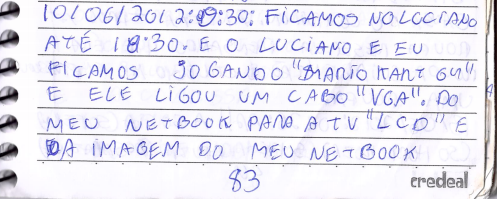 10/06/2012:9:30: FICAMOS NO LUCIANO
ATÉ 18:30. E O LUCIANO E EU
FICAMOS JOGANDO "MARIO KART 64"
E ELE LIGOU UM CABO "VGA". DO
MEU NETBOOK PARA A TV "LCD" E
DA IMAGEM DO MEU NETBOOK
83
credeal